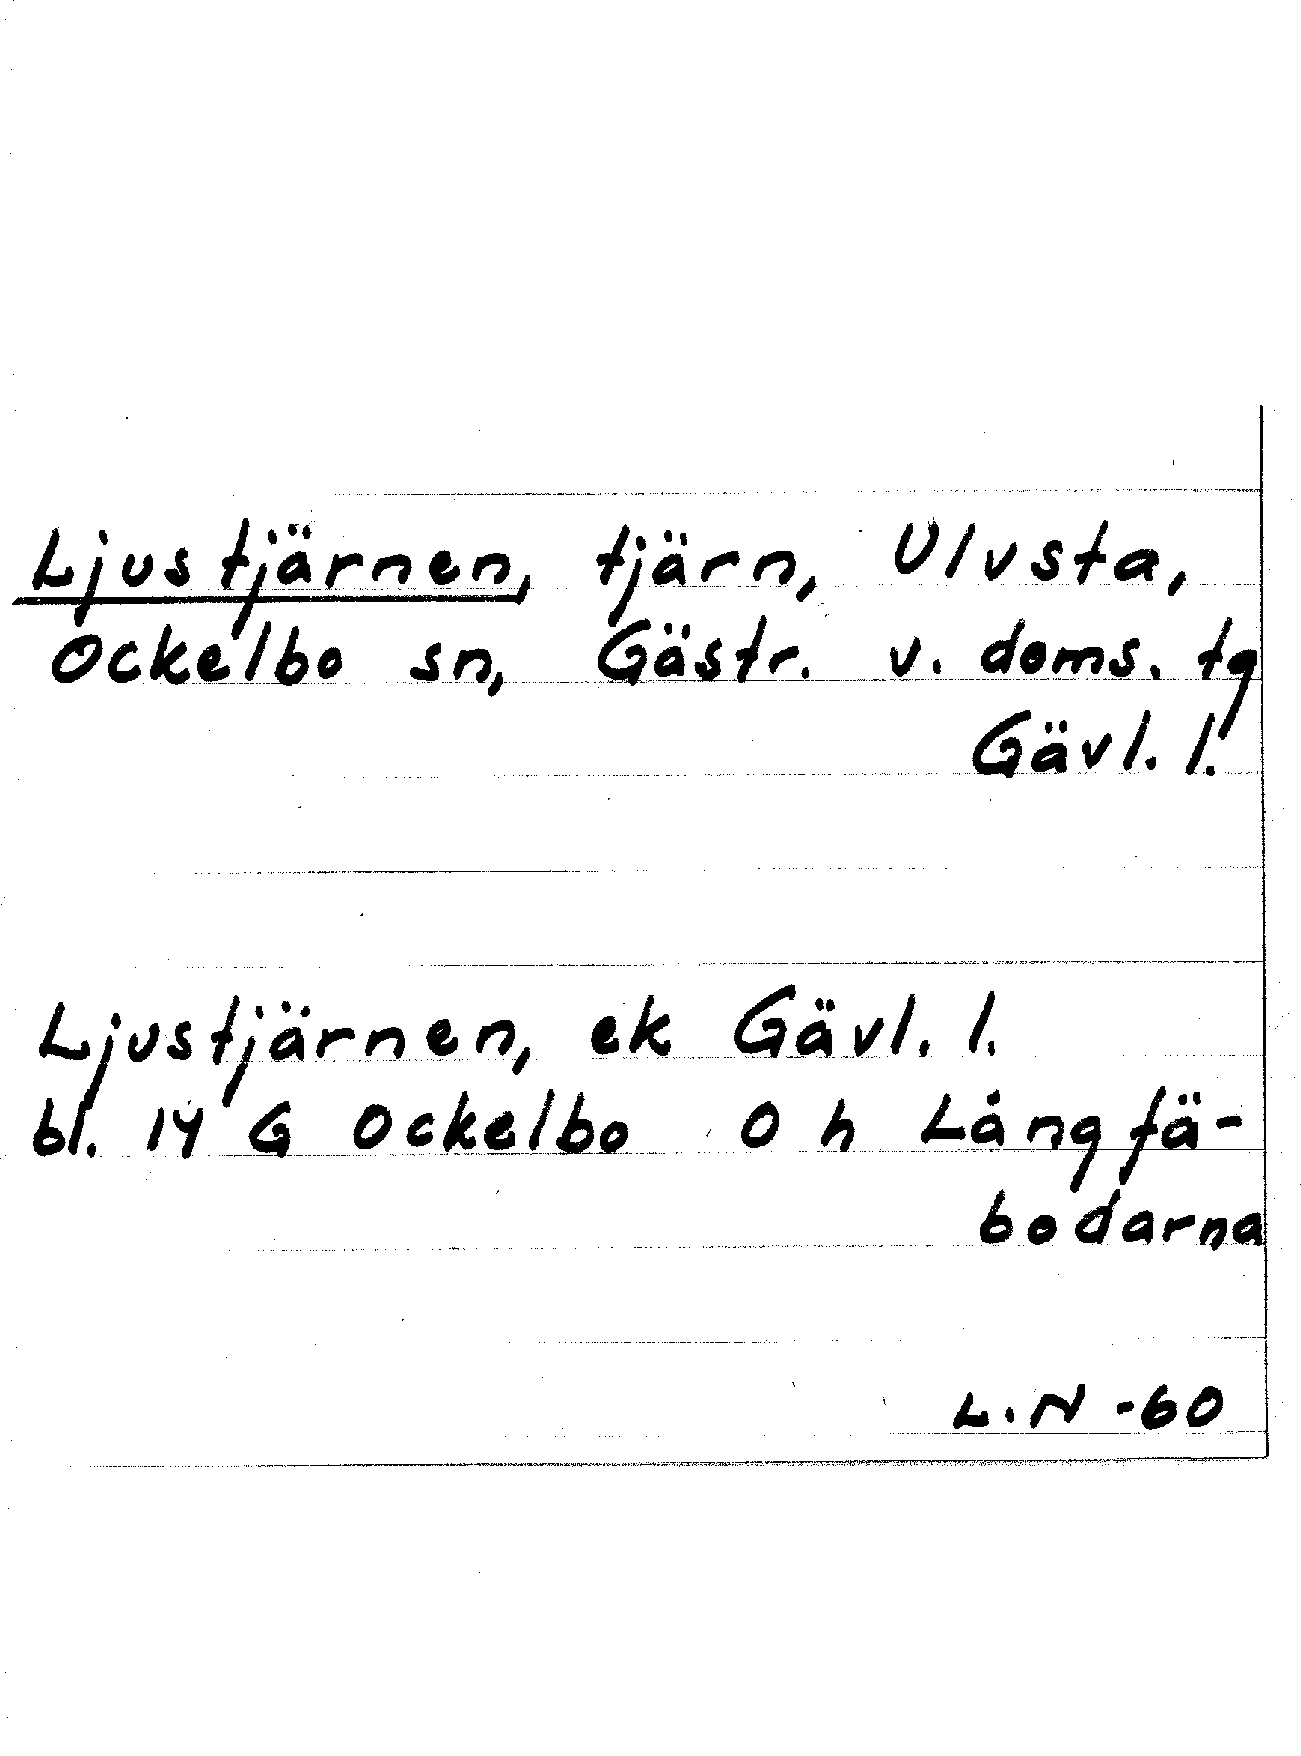 Ljustjärnen, tjärn, Ulvsta,
Ockelbo sn, Gästr. v. doms. tg
Gävl. l.
Ljustjärnen, ek Gävl. l.
bl. 14 G Ockelbo O h Långfä-
bodarna
L.N -60